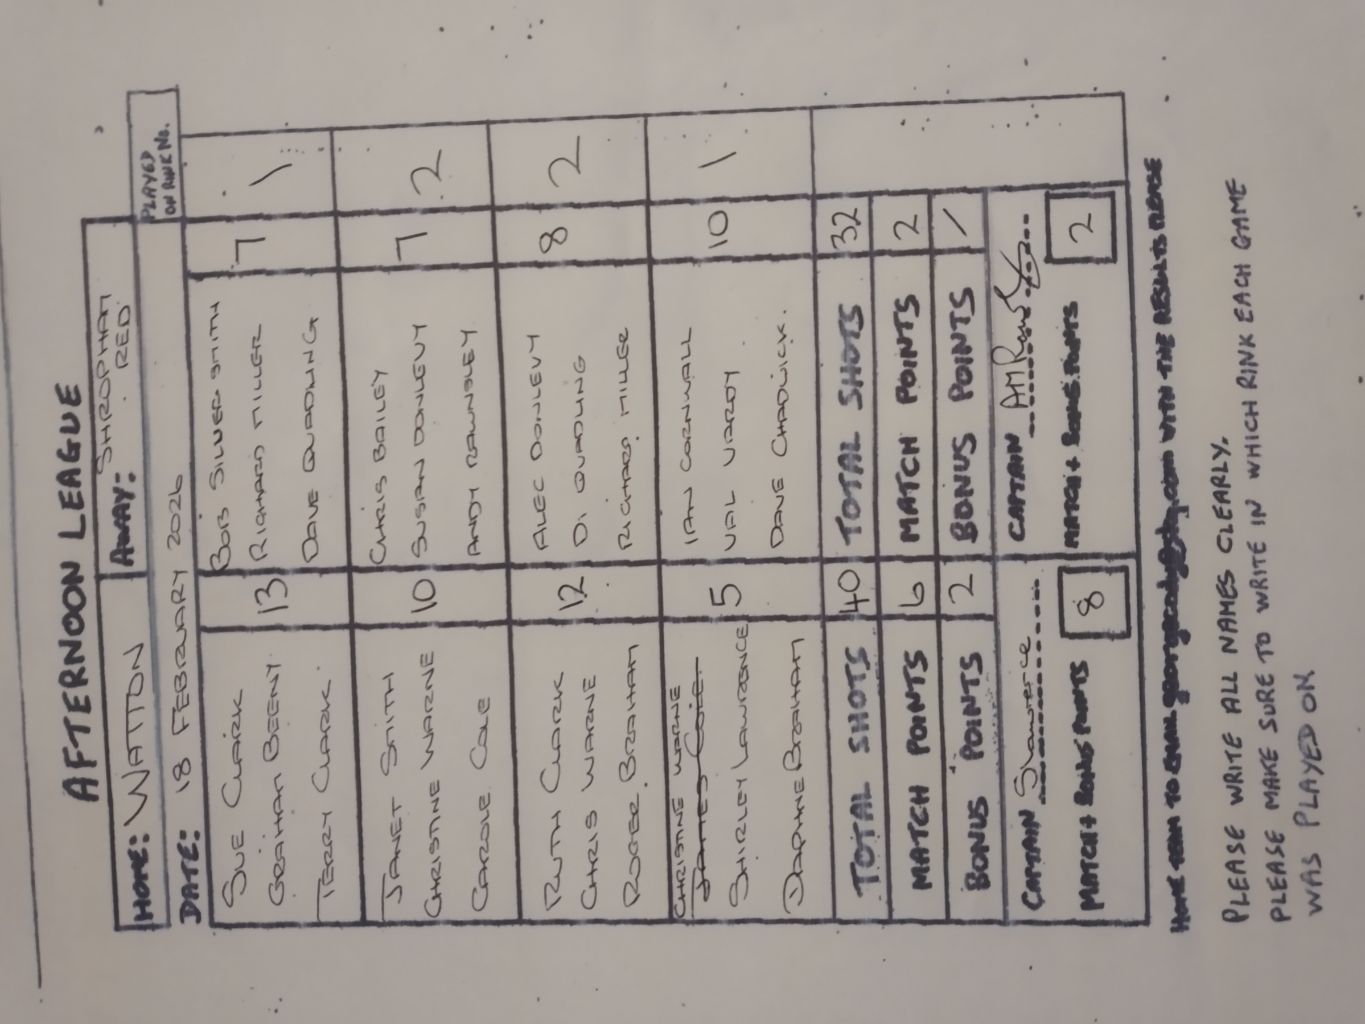 AFTERNOON LEAGUE
HOME: WATTON AWAY: SHROPHAM RED
DATE: 18 FEBRUARY 2026 PLAYED ON RINK NO.
SUE CLARK BOB SILVERSMITH
GRAHAM BEENY 13 RICHARD MILLER 7 1
TERRY CLARK. DAVE QUADLING
JANET SMITH CHRIS BAILEY
CHRISTINE WARNE 10 SUSAN DONLEVY 7 2
CAROLE COLE ANDY RAWNSLEY
RUTH CLARK ALEC DONLEVY
CHRIS WARNE 12 DI QUADLING 8 2
ROGER BRAHAM RICHARD MILLER
CHRISTINE WARNE IAN CORNWALL
SHIRLEY LAWRENCE 5 VAL VARDY 10 1
DAPHNE BRAHAM DAVE CHADWICK.
TOTAL SHOTS 40 TOTAL SHOTS 32
MATCH POINTS 6 MATCH POINTS 2
BONUS POINTS 2 BONUS POINTS /
CAPTAIN SLawrence CAPTAIN
MATCH + BONUS POINTS 8 MATCH + BONUS POINTS 2
HOME TEAM TO EMAIL WITH THE RESULTS PLEASE
PLEASE WRITE ALL NAMES CLEARLY.
PLEASE MAKE SURE TO WRITE IN WHICH RINK EACH GAME
WAS PLAYED ON